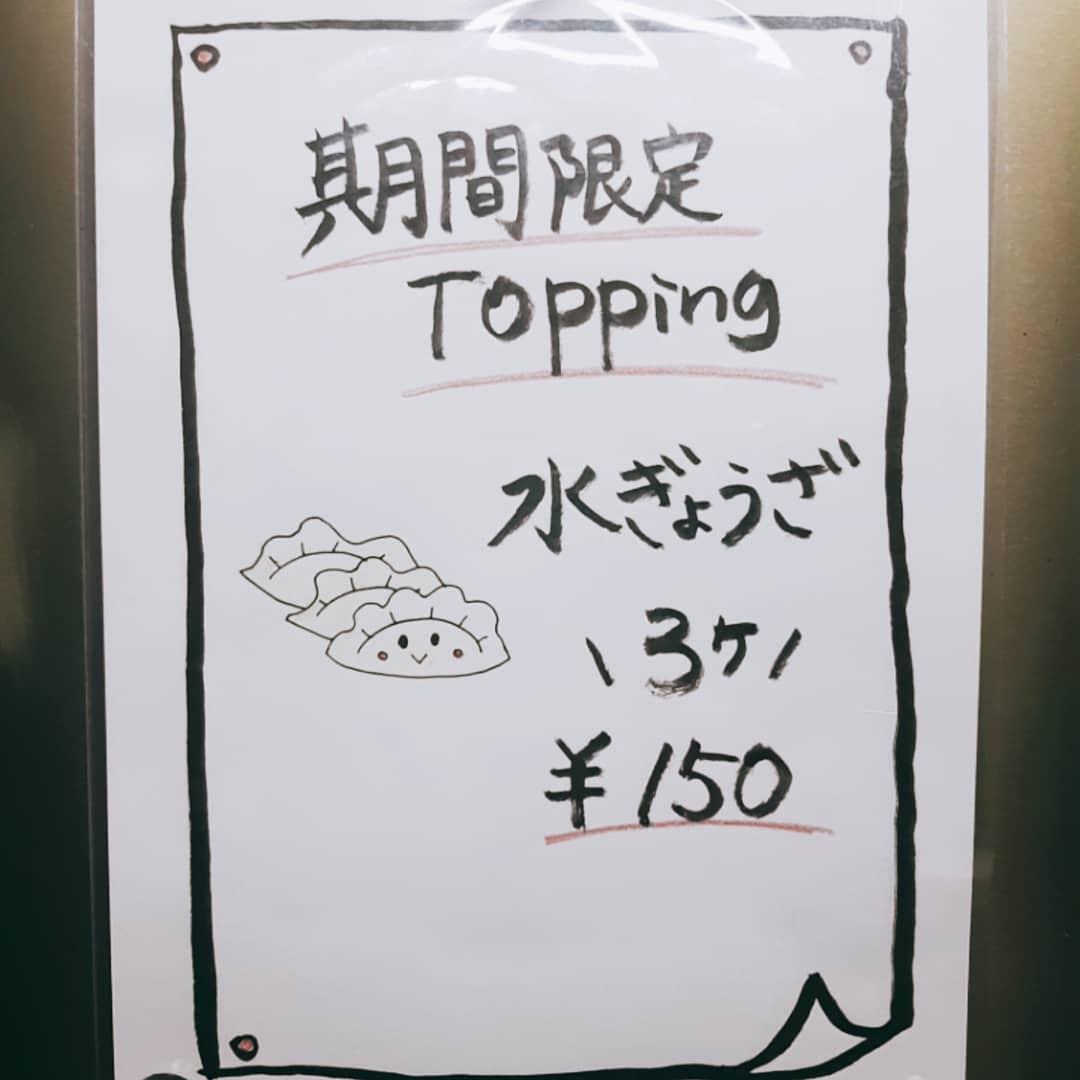 期間限定
Topping
水ぎょうざ
\ 3ケ /
¥150